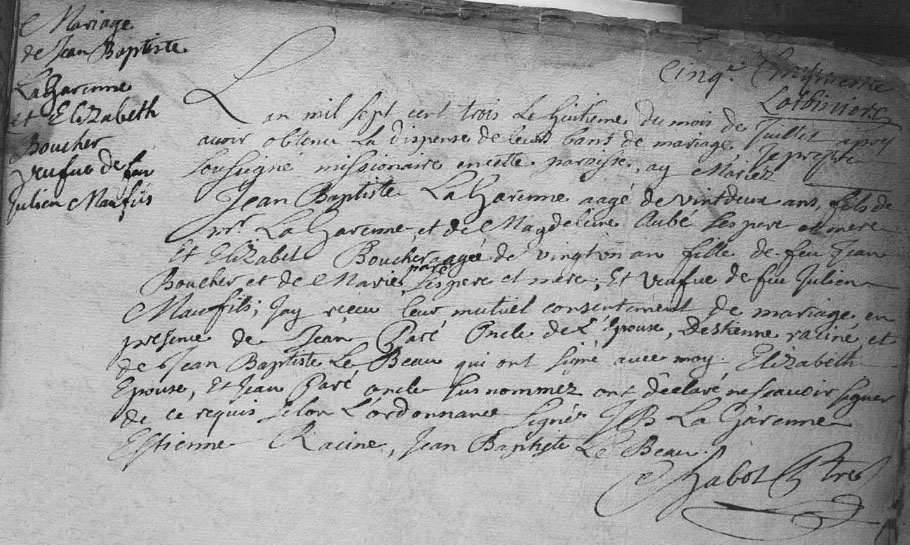 Mariage
de Jean Baptiste
La Garenne
et Elizabeth
Boucher
veufue de feu
Julien Maufiis
Cinq.e
L'an mil sept cent trois Le huitieme du mois de Juillet apres
avoir obtenu La dispense de leurs bans de mariage, Je prestre
soussigné missionaire en cette paroysse, ay Mariez
Jean Baptiste La Garenne aagé de vintdeux ans, fils de
La Garenne et de Magdeleine Aubé ses pere et mere
Et Elizabet Boucher aagée de vingtun an fille de feu Jean
Boucher et de Marie paré ses pere et mere; Et veufue de feu Julien
Maufils; Jay receu leur mutuel consentement de mariage, en
presence de Jean Paré Oncle de L'epouse, destienne racine, et
de Jean Baptiste Le Beau qui ont signé avec moy. Elizabeth
Epouse, Et Jean Paré oncle susnommez ont declaré ne scauoir signer
de ce requis selon L'ordonnance signé JB La Garenne
Estienne Racine, Jean Baptiste Le Beau.
Chabot Ptre